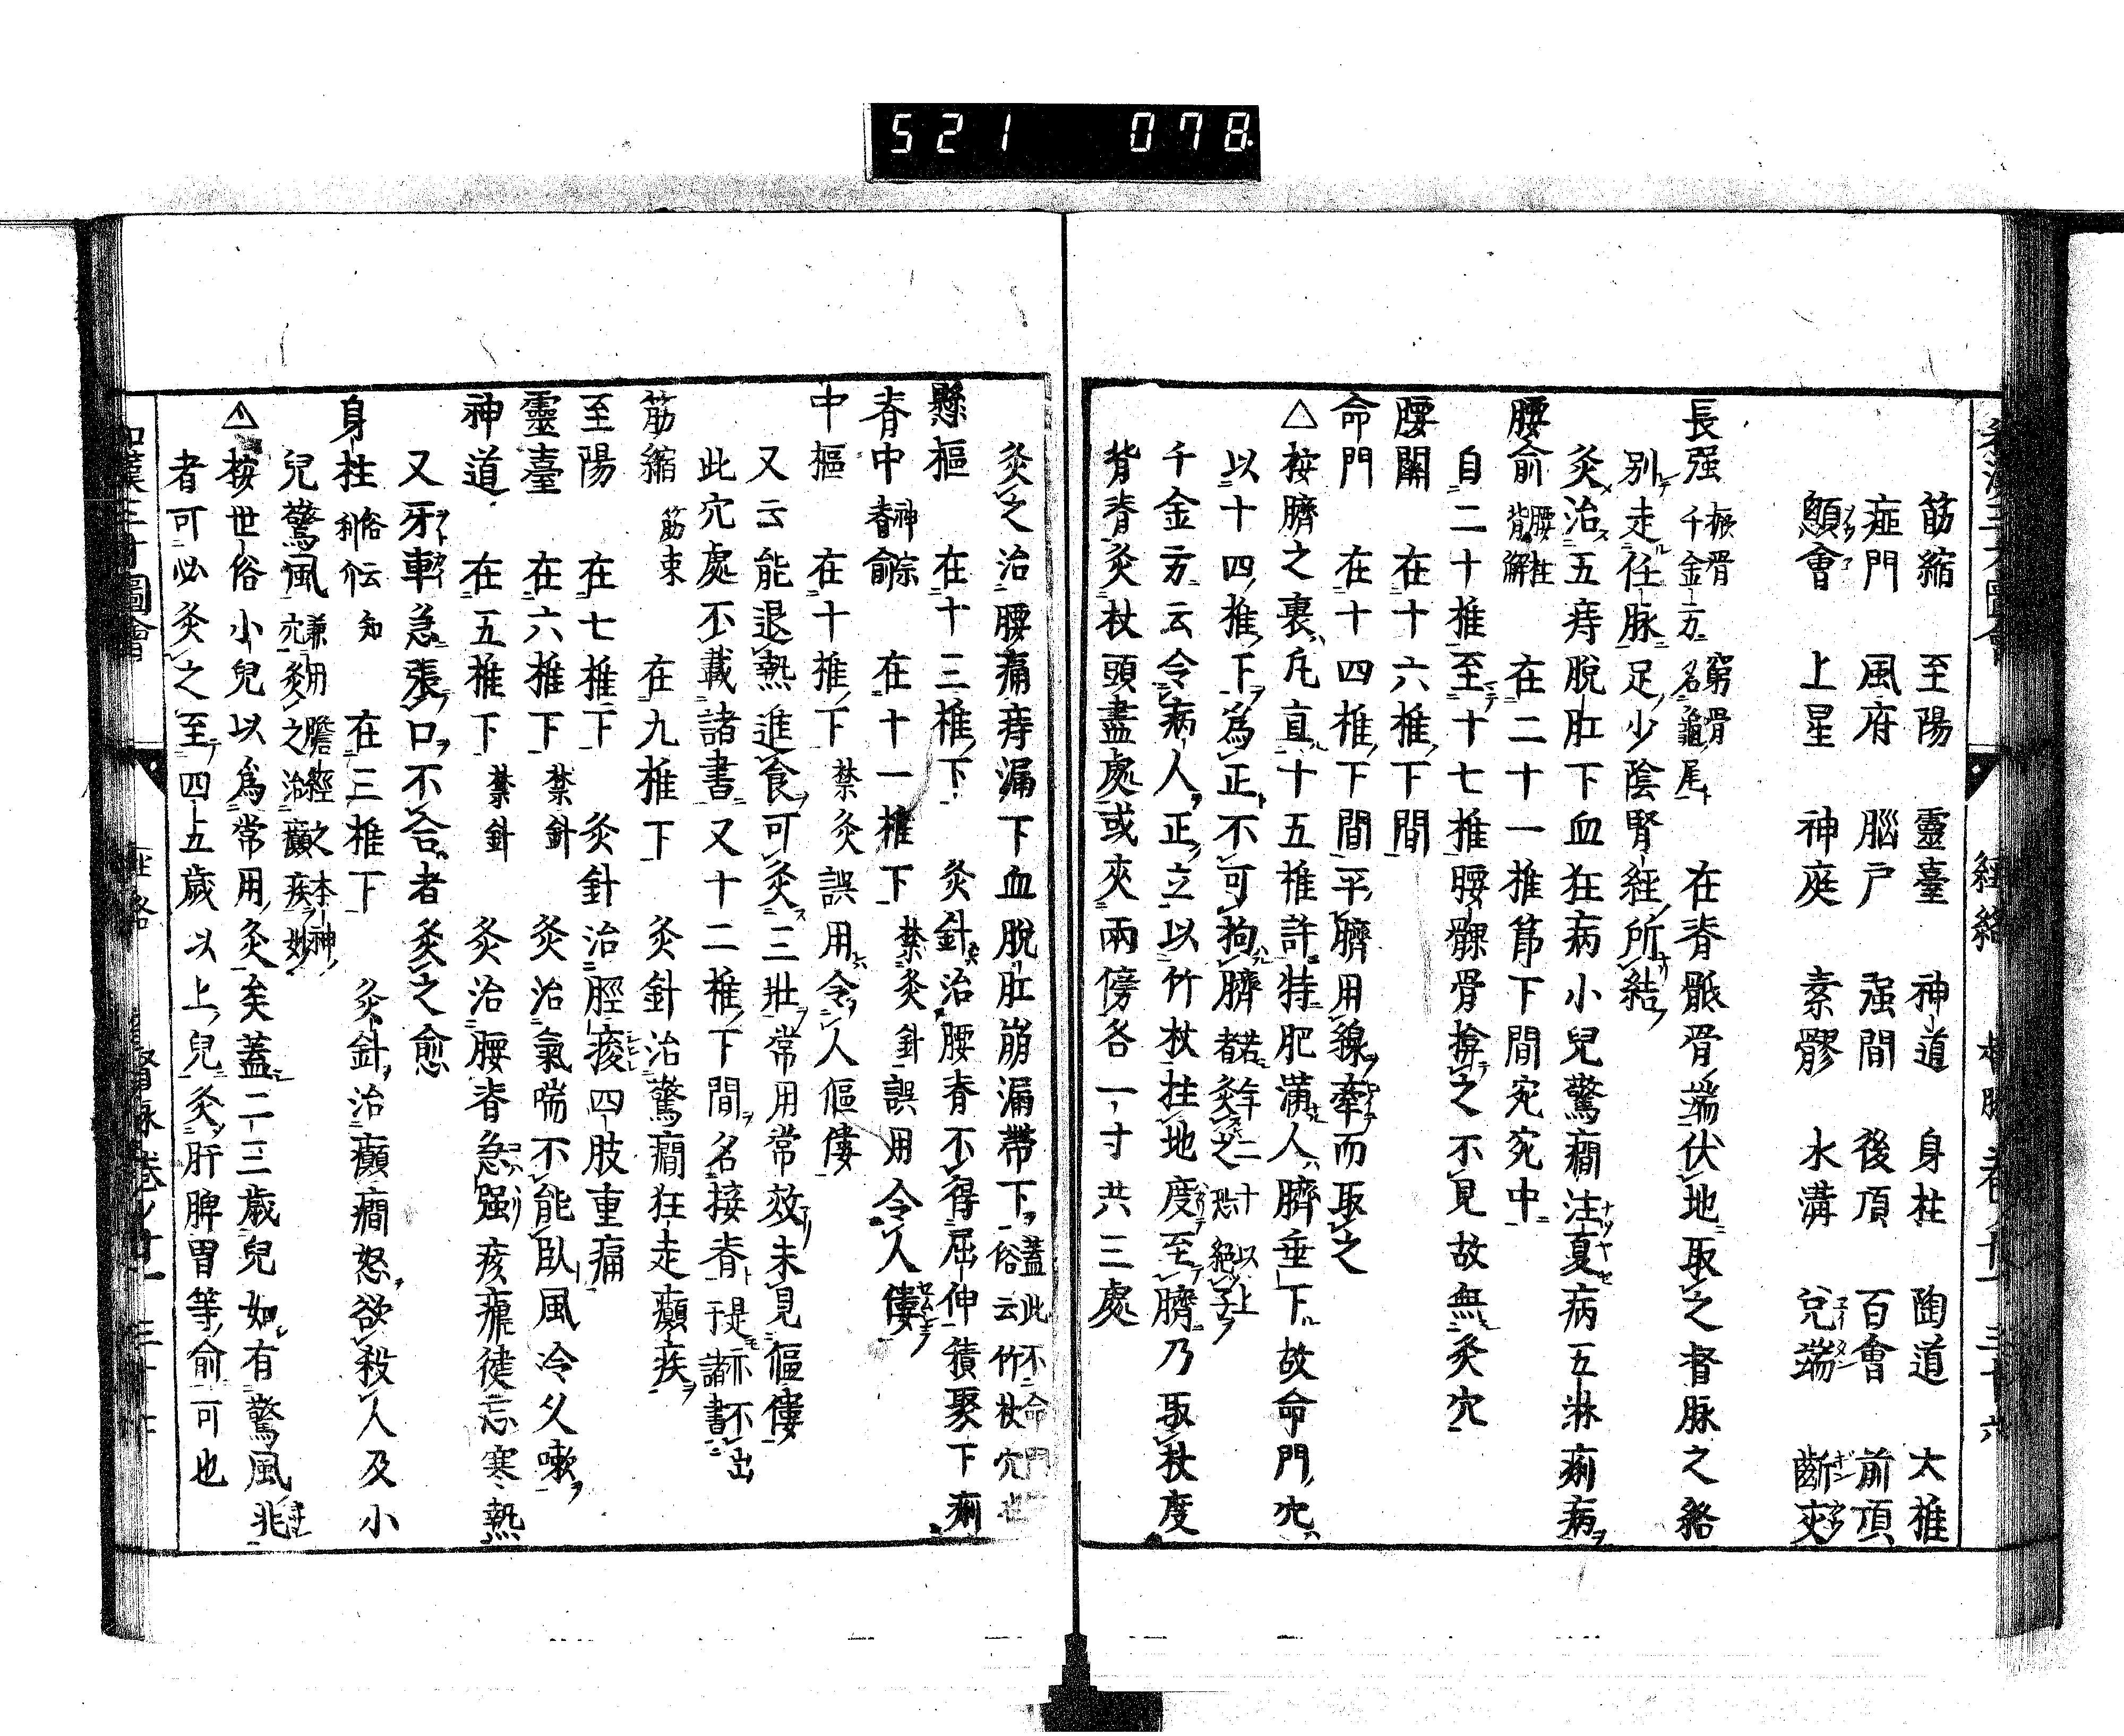 521 078
筋縮 至陽 靈臺 神道 身柱 陶道 大椎
瘂門 風府 腦戸 强間 後頂 百會 前頂
顖會 上星 神庭 素髎 水溝 兌端 齗交
長强 橛骨 窮骨 千金方名龜尾 在脊骶骨端伏地取之督脉之絡
別走任脉足少陰腎経所結
灸治五痔脫肛下血狂病小兒驚癇注夏病五淋痢病
腰俞 腰柱 背解 在二十一椎節下間宛宛中
自二十椎至十七椎腰髁骨揜之不見故無灸穴
腰關 在十六椎下間
命門 在十四椎下間平臍用線牽而取之
△按臍之裏凡直十五椎許特肥滿人臍垂下故命門穴
以十四椎下爲正不可拘臍者 若年二十以上灸之恐絕子
千金方云令病人正立以竹杖拄地度至臍乃取杖度
背脊灸杖頭盡處或夾兩傍各一寸共三處
灸之治腰痛痔漏下血脫肛崩漏帶下 蓋此不命門俗云竹杖穴也
懸樞 在十三椎下 灸針治腰脊不得屈伸積聚下痢
脊中 神宗 脊俞 在十一椎下 禁灸針誤用令人僂
中樞 在十椎下 禁灸誤用令人傴僂
又云能退熱進食可灸三壯常用常效未見傴僂
此穴處不載諸書又十二椎下間名接脊 是亦不出于諸書
筋縮 筋束 在九椎下 灸針治驚癇狂走癲疾
至陽 在七椎下 灸針治脛痠四肢重痛
靈臺 在六椎下 禁針 灸治氣喘不能臥風冷久嗽
神道 在五椎下 禁針 灸治腰脊急强痎瘧健忘寒熱
又牙車急張口不合者灸之愈
身柱 俗云知利介 在三椎下 灸針治癲癇怒欲殺人及小
兒驚風 兼用膽經之本神穴灸之治癲疾妙
△按世俗小兒以爲常用灸矣蓋二三歲兒如有驚風兆
者可必灸之至四五歲以上兒灸肝脾胃等俞可也